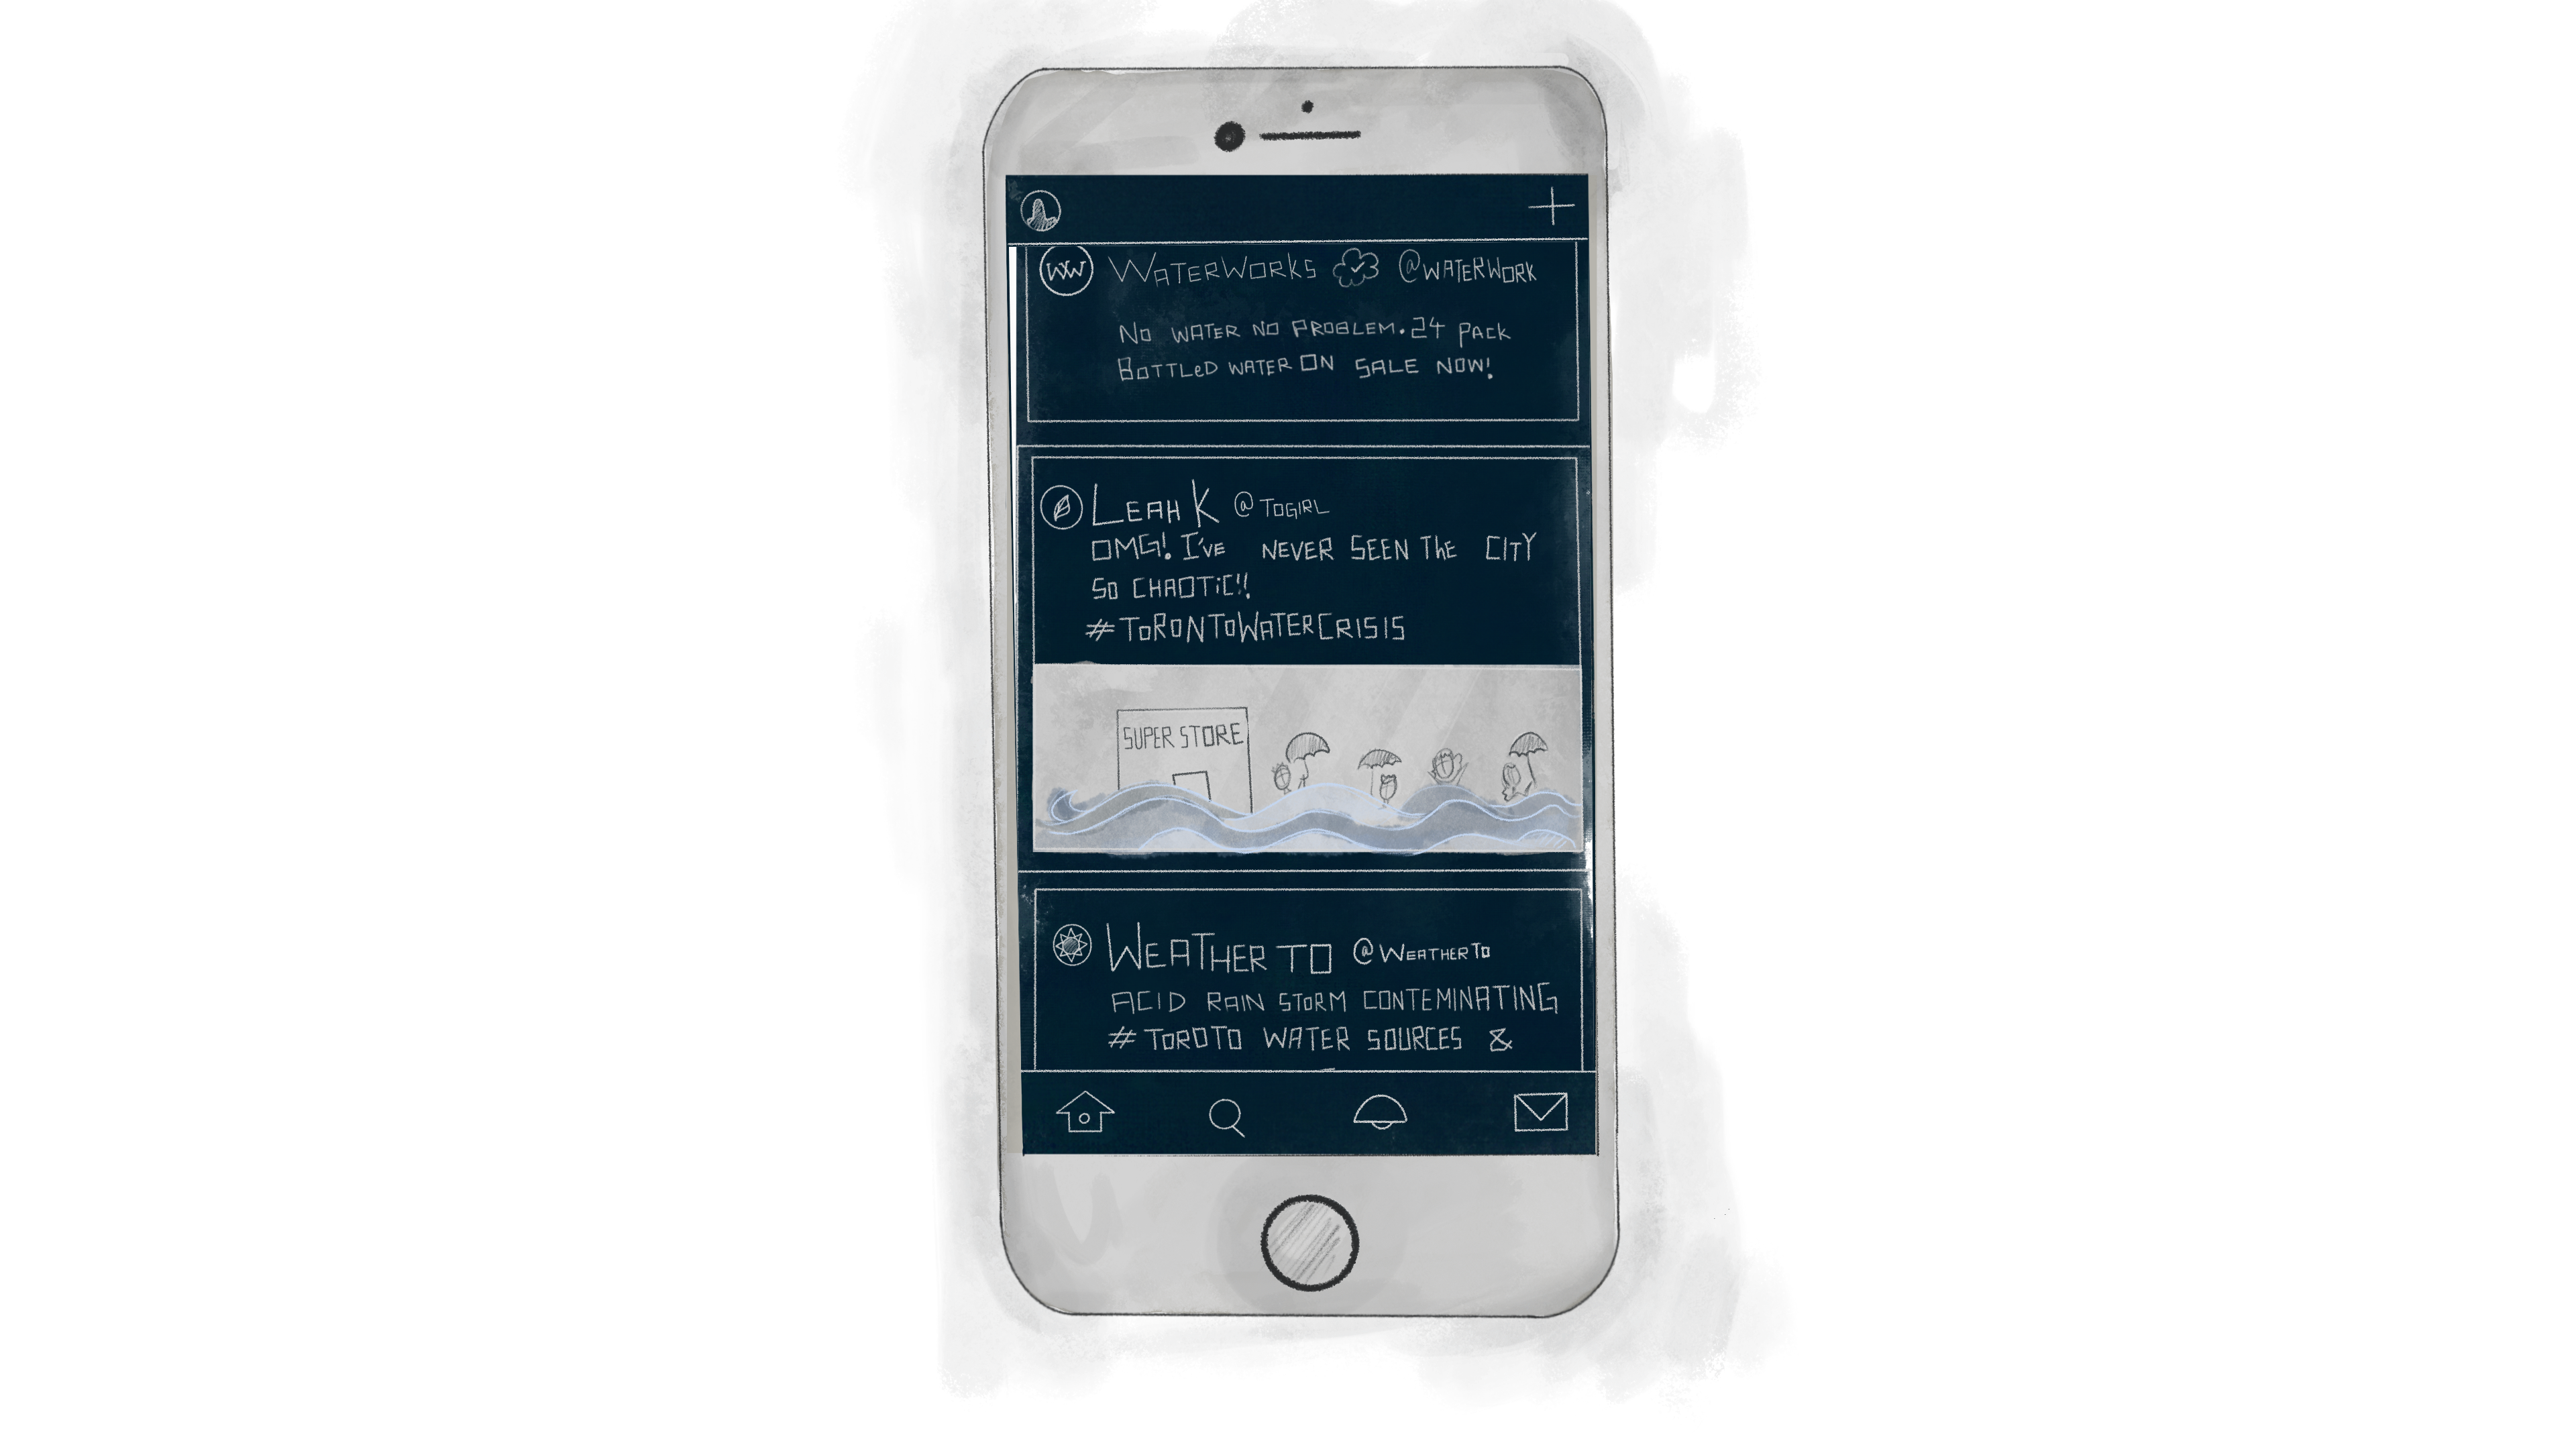 WW WATERWORKS @WATERWORK
NO WATER NO PROBLEM. 24 PACK
BOTTLED WATER ON SALE NOW!
LEAH K @TOGIRL
OMG! I'VE NEVER SEEN THE CITY
SO CHAOTIC!!
#TORONTOWATERCRISIS
SUPER STORE
WEATHER TO @WEATHERTO
ACID RAIN STORM CONTEMINATING
#TOROTO WATER SOURCES &